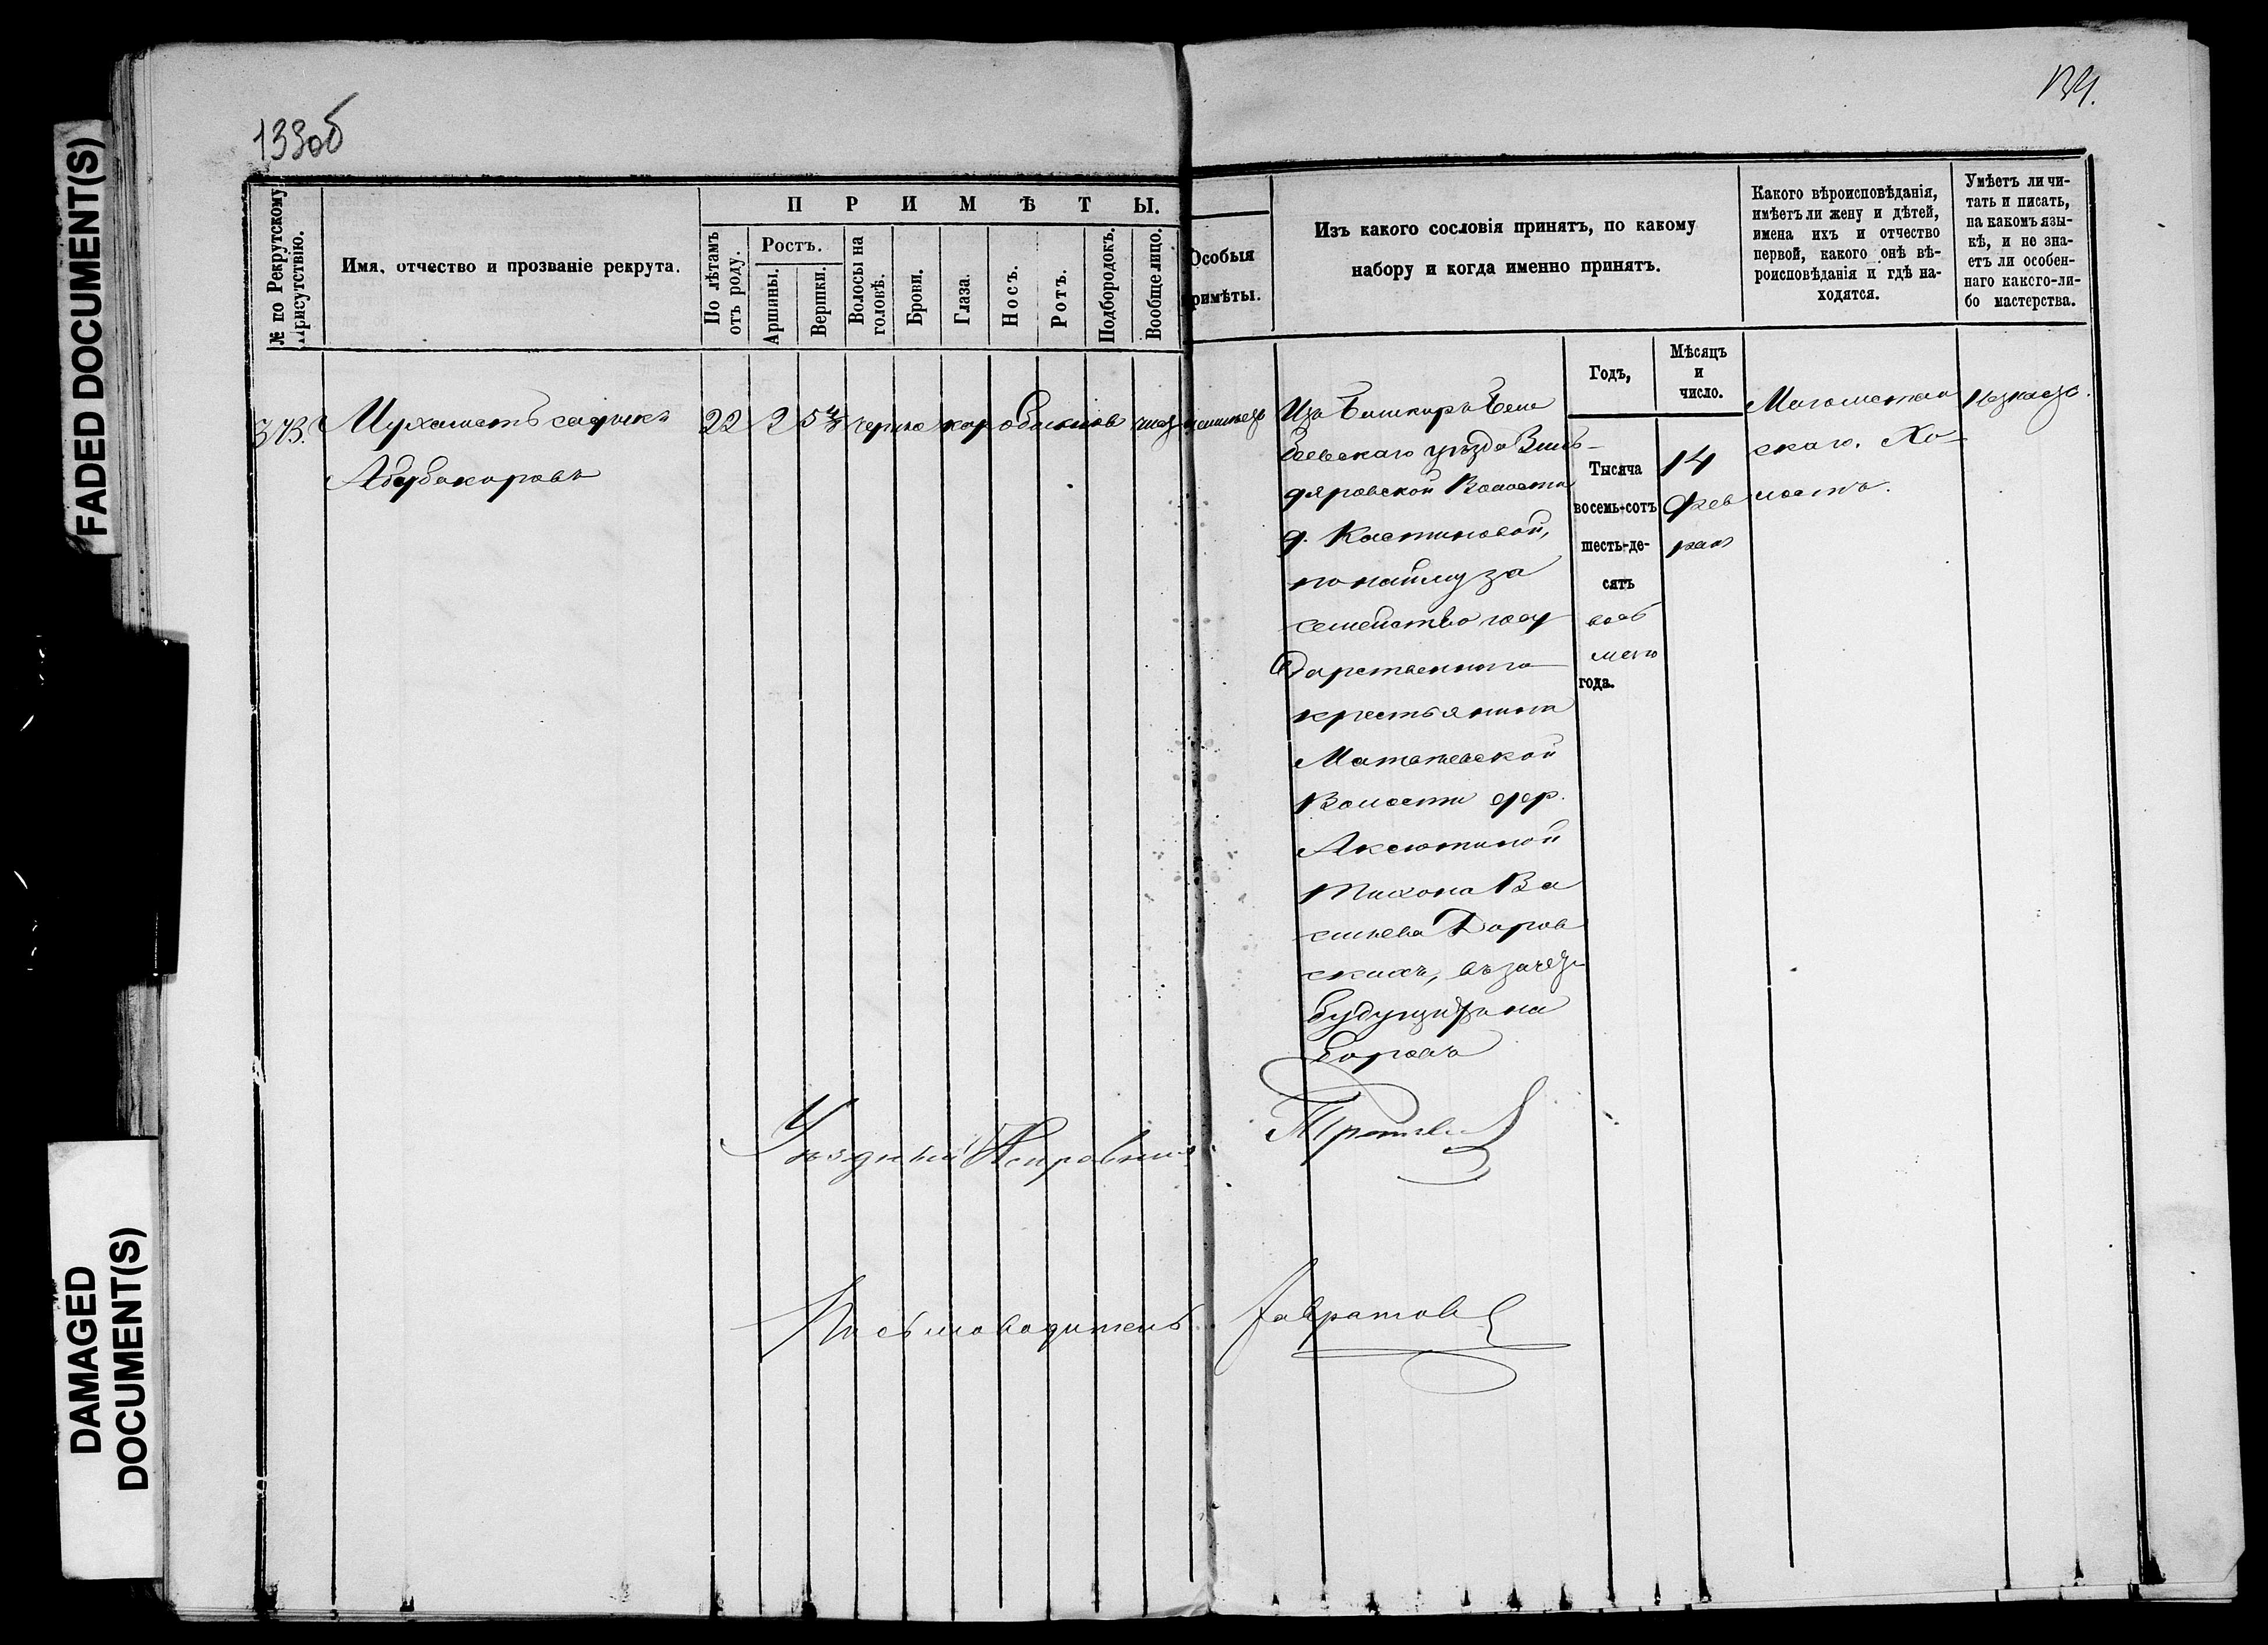 FADED DOCUMENT(S)
DAMAGED
DOCUMENT(S)
133об
134.
№ по Рекрутскому
присутствію.
Имя, отчество и прозваніе рекрута.
ПРИМѢТЫ.
По лѣтамъ
отъ роду.
Ростъ.
Аршины.
Вершки.
Волосы на
головѣ.
Брови.
Глаза.
Носъ.
Ротъ.
Подбородокъ.
Вообще лицо.
Особыя
примѣты.
Изъ какого сословія принятъ, по какому
набору и когда именно принятъ.
Какого вѣроисповѣданія,
имѣетъ ли жену и дѣтей,
имена ихъ и отчество
первой, какого онѣ вѣ-
роисповѣданія и гдѣ на-
ходятся.
Умѣетъ ли чи-
тать и писать,
на какомъ язы-
кѣ, и не зна-
етъ ли особен-
наго каксго-ли-
бо мастерства.
Годъ,
Мѣсяцъ
и
число.
373.
Мухаметъ садыкъ
Абубакировъ
22 2 черно кар обыкнов чист
Изъ Башкиръ Беле
беевскаго уѣзда
дяровской Волости
д. Кастиновой,
по найму за
семейство госу
дарственнаго
крестьянина
Волости дер.
Аксютиной
Тихона Ва
сильева Доров
скихъ, въ зачетъ
будущихъ на
боровъ
Тысяча
восемь-сотъ
шесть-де-
сятъ
вось
маго
года.
14
Фев
раля
Магометан
скаго. Хо
лостъ.
Уѣздный Исправник
Письмоводитель